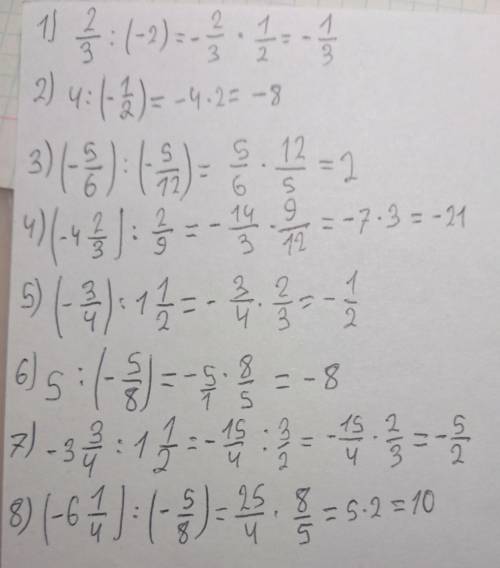 1) 2/3 : (-2) = -2/3 · 1/2 = -1/3
2) 4 : (-1/2) = -4·2 = -8
3) (-5/6) : (-5/12) = 5/6 · 12/5 = 2
4) (-4 2/3) : 2/9 = -14/3 · 9/12 = -7·3 = -21
5) (-3/4) : 1 1/2 = -3/4 · 2/3 = -1/2
6) 5 : (-5/8) = -5/1 · 8/5 = -8
7) -3 3/4 : 1 1/2 = -15/4 : 3/2 = -15/4 · 2/3 = -5/2
8) (-6 1/4) : (-5/8) = 25/4 · 8/5 = 5·2 = 10